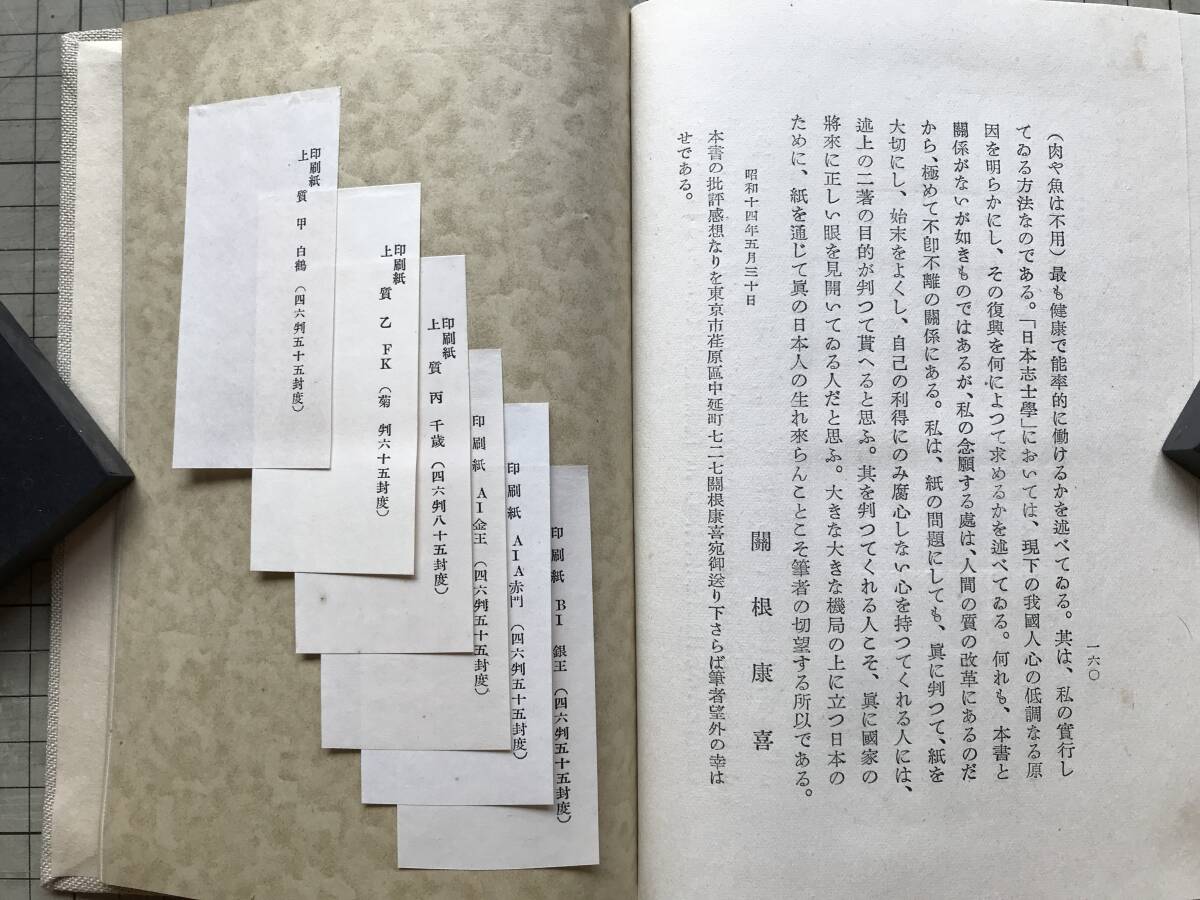 一六〇
(肉や魚は不用)最も健康で能率的に働けるかを述べてゐる。其は、私の實行し
てゐる方法なのである。「日本志士學」においては、現下の我國人心の低調なる原
因を明らかにし、その復興を何によつて求めるかを述べてゐる。何れも、本書と
關係がないが如きものではあるが、私の念願する處は、人間の質の改革にあるのだ
から、極めて不卽不離の關係にある。私は、紙の問題にしても、眞に判つて、紙を
大切にし、始末をよくし、自己の利得にのみ腐心しない心を持つてくれる人には、
述上の二著の目的が判つて貰へると思ふ。其を判つてくれる人こそ、眞に國家の
將來に正しい眼を見開いてゐる人だと思ふ。大きな大きな機局の上に立つ日本の
ために、紙を通じて眞の日本人の生れ來らんことこそ筆者の切望する所以である。
昭和十四年五月三十日
關根康喜
本書の批評感想なりを東京市荏原區中延町七二七關根康喜宛御送り下さらば筆者望外の幸は
せである。
印刷紙 BI 銀王 (四六判五十五封度)
印刷紙 AIA赤門 (四六判五十五封度)
印刷紙 AI金王 (四六判五十五封度)
印刷紙
上質丙 千歳 (四六判八十五封度)
印刷紙
上質乙 FK (菊判六十五封度)
印刷紙
上質甲 白鶴 (四六判五十五封度)